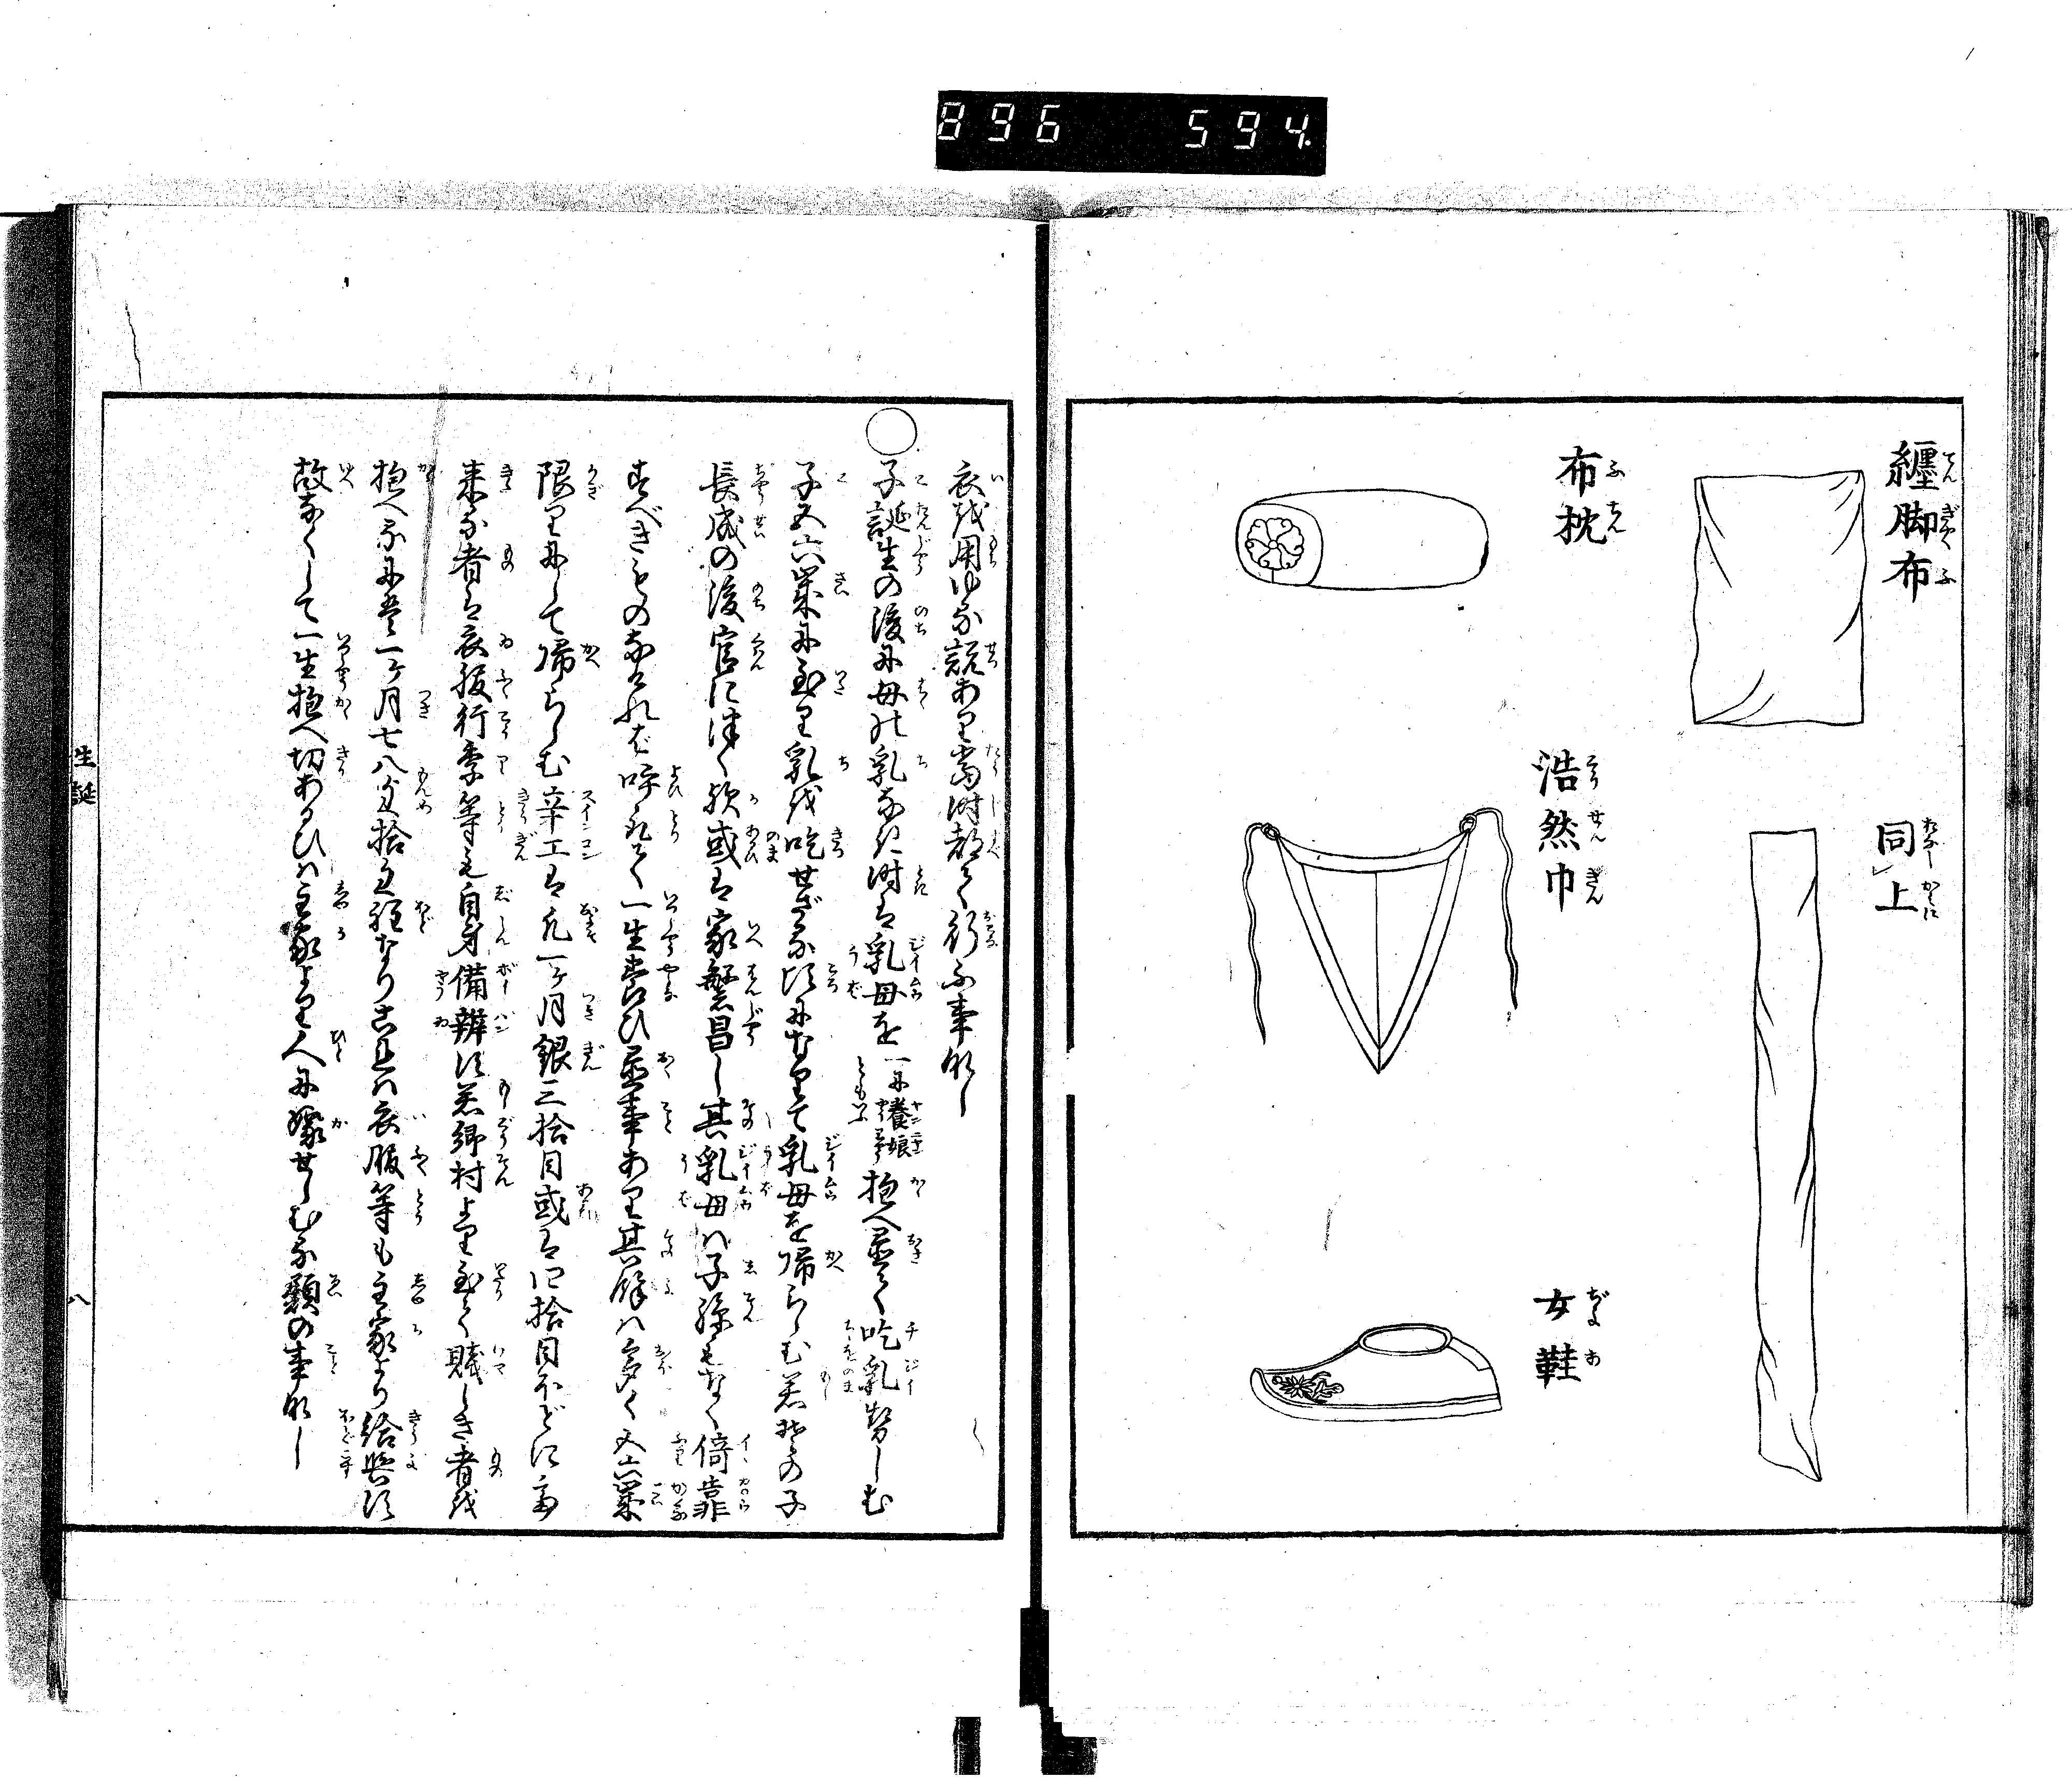 896 594.
纏脚布
同上
布枕
浩然巾
女鞋
衣を用ゆる説あり當時都て行ふ事なし
子誕生の後に母の乳なき時は乳母を一に養娘ともいふ抱へ置て吃乳勢しむ
子五六歳に至り乳を吃せざる頃になりて乳母を帰らしむ若其の子
長成の後官に陞く歟或は家繁昌し其乳母ハ子孫もなく倚靠
すべきものなければ呼取て一生養ひ置事あり其餘ハ多く五六歳
限りにして帰らしむ辛工は凡一ヶ月銀三拾目或は四拾目ほどに
来る者は衣服行李等も自身備辨す若郷村より至て賤しき者を
抱へるには一ヶ月七八匁拾匁程なり尤ハ衣服等も主家より給與す
故なくして一生抱へ切あるひハ主家より人に嫁せしむる類の事なし
生誕
八